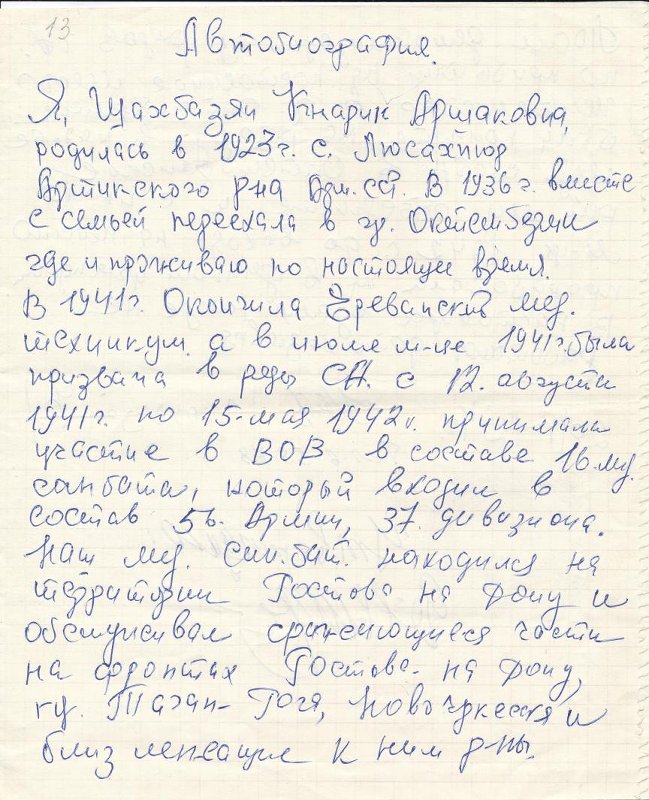 13
Автобиография.
Я, Шахбазян Кнарик Аршаковна,
родилась в 1923 г. с. Люсахпюр
Артикского р-на Арм. ССР. В 1936 г. вместе
с семьей переехала в гр. Октембезян
где и проживаю по настоящее время.
В 1941 г. Окончила Ереванский мед.
техникум а в июле м-це 1941 г. была
призвана в ряды СА. с 12. августа
1941 г. по 15-мая 1942 г. принимала
участие в ВОВ в составе 16 мед.
санбата, который входил в
состав 56. Армии, 37. дивизиона.
Наш мед. сан.бат. находился на
территории Ростова на Дону и
обслуживал сражающиеся части
на фронтах Ростова-на Дону,
гг. Таган-Рога, Новочеркесска и
близ лежащие к ним р-ны.